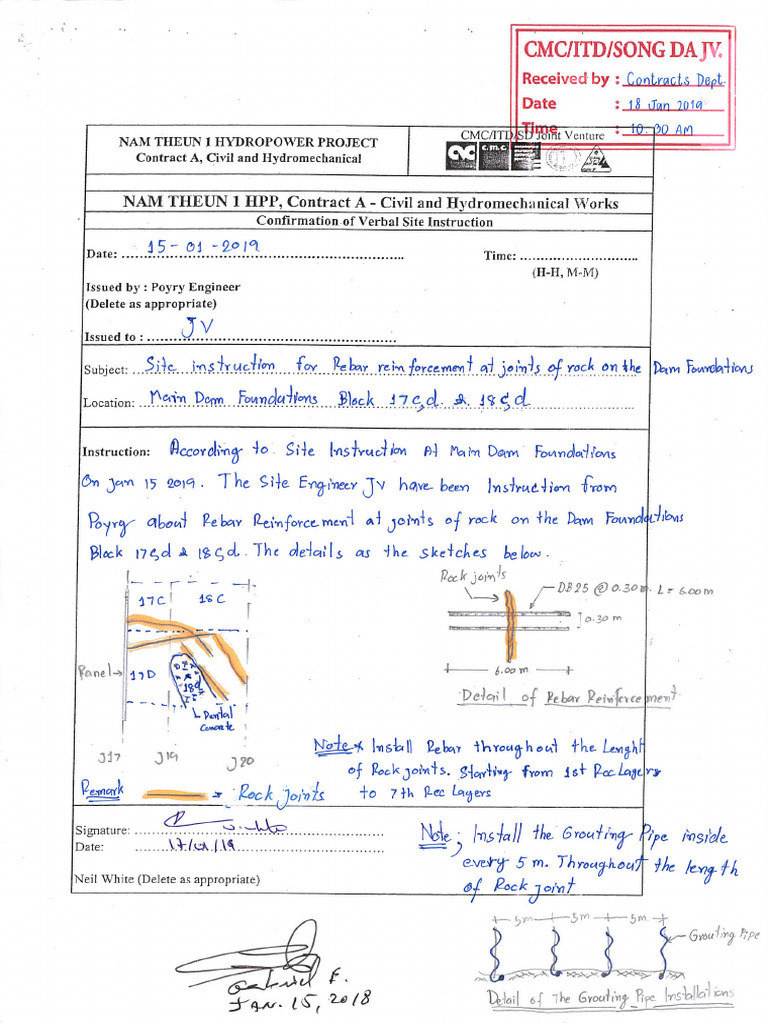 CMC/ITD/SONG DA JV.
Received by : Contracts Dept.
Date : 18 Jan 2019
Time : 10:30 AM
NAM THEUN 1 HYDROPOWER PROJECT
Contract A, Civil and Hydromechanical
CMC/ITD/SD Joint Venture
c.m.c.
NAM THEUN 1 HPP, Contract A - Civil and Hydromechanical Works
Confirmation of Verbal Site Instruction
Date: 15-01-2019
Time:
(H-H, M-M)
Issued by : Poyry Engineer
(Delete as appropriate)
Issued to : JV
Subject: Site instruction for Rebar reinforcement at joints of rock on the Dam Foundations
Location: Main Dam Foundations Block 17C,d & 18C,d
Instruction: According to Site Instruction At Main Dam Foundations
On Jan 15 2019. The Site Engineer JV have been Instruction from
Poyrg about Rebar Reinforcement at joints of rock on the Dam Foundations
Block 17C,d & 18C,d. The details as the sketches below.
17C 18C
Panel
17D
18d
Dental
Concrete
J17 J19 J20
Remark = Rock Joints
Rock joints
DB25 @ 0.30 m. L = 6.00 m
0.30 m
6.00 m
Detail of Rebar Reinforcement
Note * Install Rebar throughout the Lenght
of Rock joints. Starting from 1st Rcc Lagers
to 7th Rcc Layers
Signature:
Date: 17/01/19
Neil White (Delete as appropriate)
Note; Install the Grouting Pipe inside
every 5 m. Throughout the length
of Rock joint
5m 5m 5m
Grouting Pipe
Detail of The Grouting Pipe Installations
Gabriel F.
JAN. 15, 2018